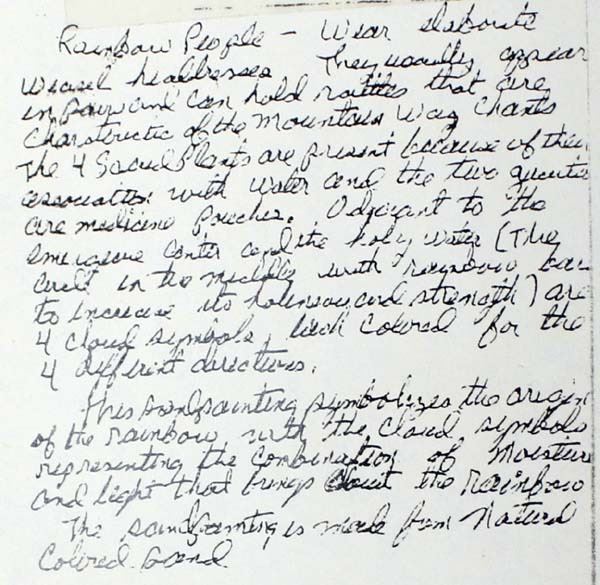 Rainbow People - Wear elaborate
Weasel headdresses They usually appear
in pairs and can hold rattles that are
of the Mountain Way Chants
The 4 Sacred Plants are present because of their
association with water and the two
are medicine pouches. Adjacent to the
center and the holy water (The
circle in the middle with rainbow bars
to increase its holiness and strength) are
4 cloud symbols, each colored for the
4 different directions.
This sandpainting symbolizes the origin
of the rainbow, with the cloud symbols
representing the combination of moisture
and light that brings about the rainbow
The sandpainting is made from Natural
Colored Sand